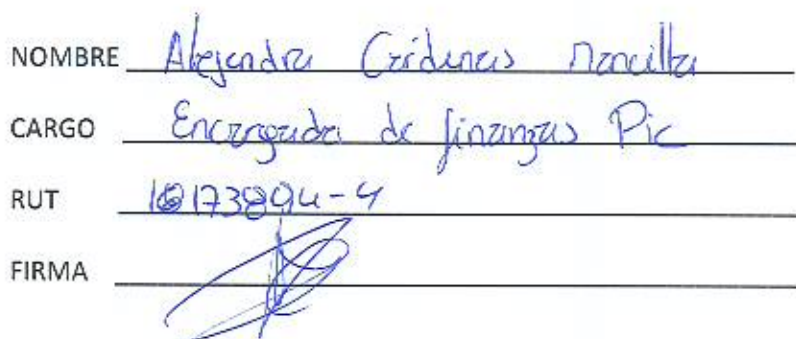 NOMBRE Alejandra Cárdenas Mancilla
CARGO Encargada de finanzas Pic
RUT
FIRMA